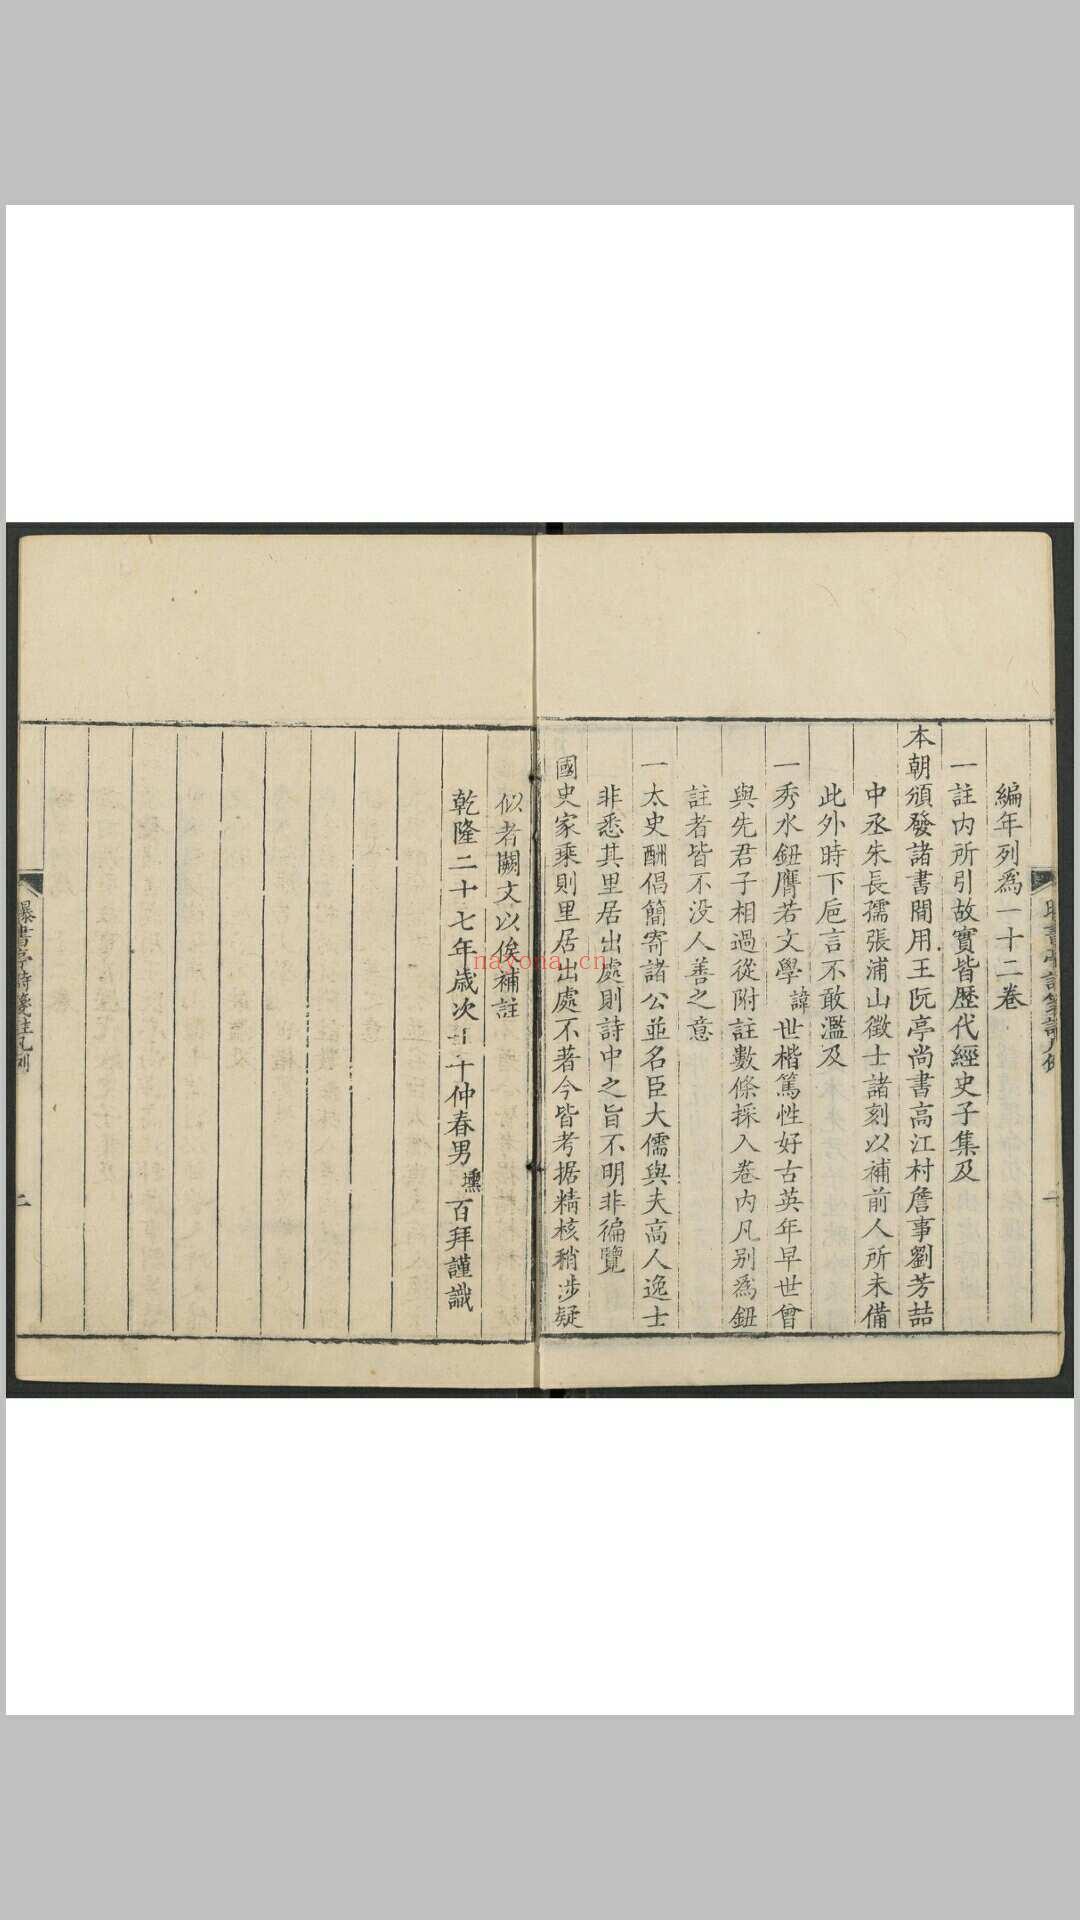 編年列爲一十二卷
一註内所引故實皆歷代經史子集及
本朝頒發諸書間用王阮亭尚書高江村詹事劉芳喆
中丞朱長孺張浦山徵士諸刻以補前人所未備
此外時下巵言不敢濫及
一秀水鈕膺若文學諱世楷篤性好古英年早世曾
與先君子相過從附註數條採入卷内凡别爲鈕
註者皆不没人善之意
一太史酬倡簡寄諸公並名臣大儒與夫高人逸士
非悉其里居出處則詩中之旨不明非徧覽
國史家乘則里居出處不著今皆考据精核稍涉疑
似者闕文以俟補註
乾隆二十七年歲次壬午仲春男壎百拜謹識
曝書亭詩箋註凡例
二
nayona.cn